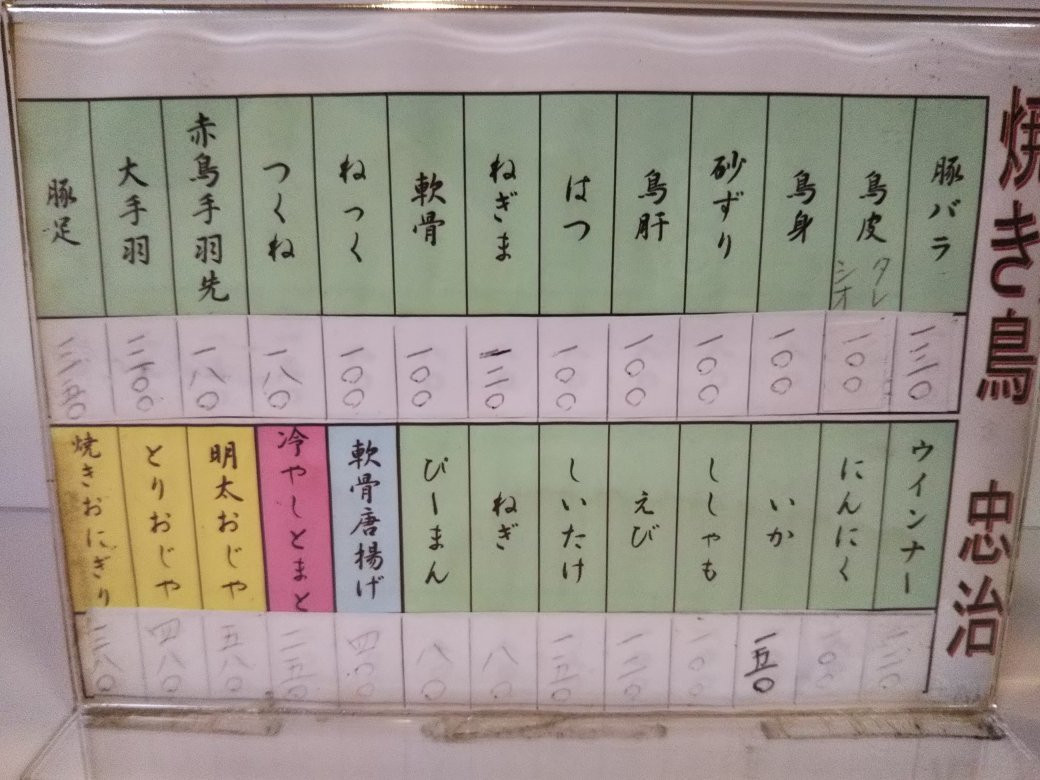 焼き鳥　忠治
豚バラ
鳥皮 タレ シオ
一〇〇
鳥身
一〇〇
砂ずり
一〇〇
鳥肝
一〇〇
はつ
一〇〇
ねぎま
一二〇
軟骨
一〇〇
ねつく
一〇〇
つくね
一八〇
赤鳥手羽先
一八〇
大手羽
豚足
ウインナー
にんにく
一〇〇
いか
一五〇
ししゃも
一〇〇
えび
一二〇
しいたけ
一五〇
ねぎ
八〇
ぴーまん
八〇
軟骨唐揚げ
四〇〇
冷やしとまと
二五〇
明太おじや
五八〇
とりおじや
四八〇
焼きおにぎり